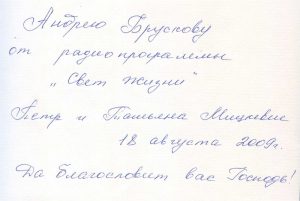 Андрею Брускову
от радиопрограммы
„Свет жизни"
Петр и Татьяна Мицкевис
18 августа 2009г.
Да благословит вас Господь!